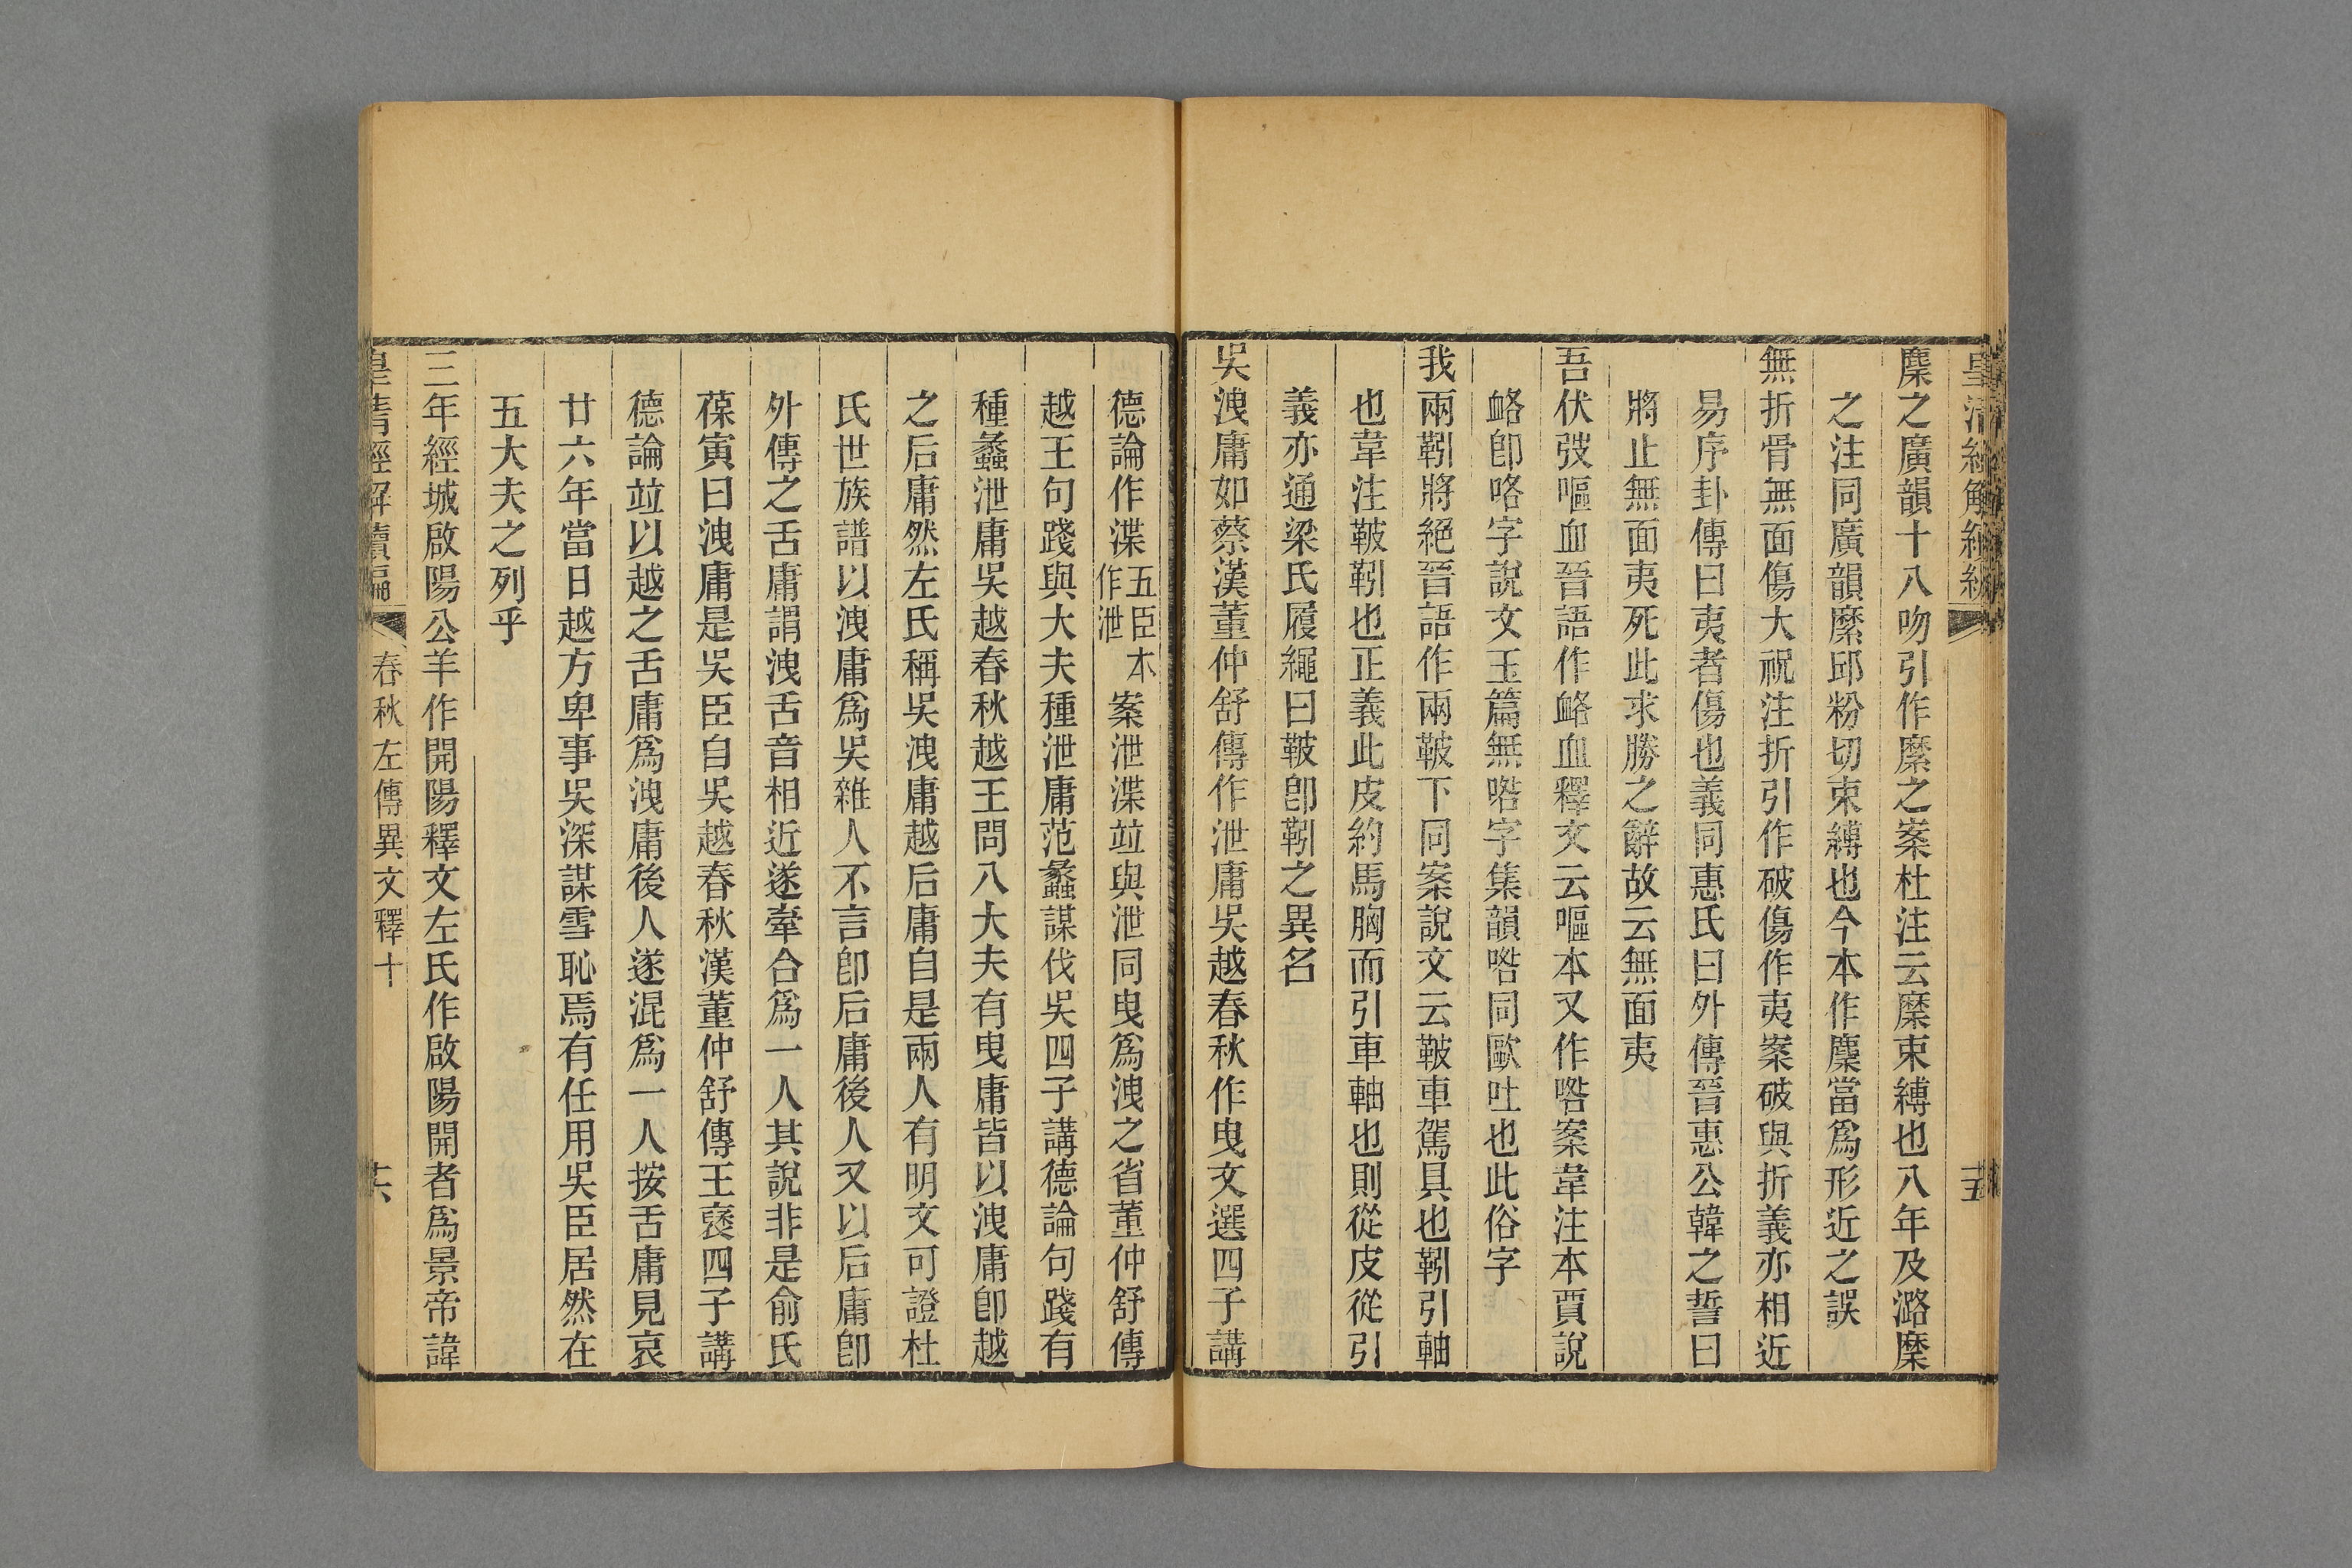 麇之廣韻十八吻引作縻之案杜注云縻束縛也八年及潞縻
之注同廣韻縻邱粉切束縛也今本作麇當爲形近之誤
無折骨無面傷大祝注折引作破傷作夷案破與折義亦相近
易序卦傳曰夷者傷也義同惠氏曰外傳晉惠公韓之誓曰
將止無面夷死此求勝之辭故云無面夷
吾伏弢嘔血晉語作衉血釋文云嘔本又作喀案韋注本賈說
衉卽咯字說文玉篇無喀字集韻喀同歐吐也此俗字
我兩靷將絕晉語作兩鞁下同案說文云鞁車駕具也靷引軸
也韋注鞁靷也正義此皮約馬胸而引車軸也則從皮從引
義亦通梁氏履繩曰鞁卽靷之異名
吳洩庸如蔡漢董仲舒傳作泄庸吳越春秋作曳文選四子講
德論作渫五臣本作泄案泄渫竝與泄同曳爲洩之省董仲舒傳
越王句踐與大夫種泄庸范蠡謀伐吳四子講德論句踐有
種蠡泄庸吳越春秋越王問八大夫有曳庸皆以洩庸卽越
之后庸然左氏稱吳洩庸越后庸自是兩人有明文可證杜
氏世族譜以洩庸爲吳雜人不言卽后庸後人又以后庸卽
外傳之舌庸謂洩舌音相近遂牽合爲一人其說非是俞氏
葆寅曰洩庸是吳臣自吳越春秋漢董仲舒傳王襃四子講
德論竝以越之舌庸爲洩庸後人遂混爲一人按舌庸見哀
廿六年當日越方卑事吳深謀雪恥焉有任用吳臣居然在
五大夫之列乎
三年經城啟陽公羊作開陽釋文左氏作啟陽開者爲景帝諱
皇清經解續編
春秋左傳異文釋十